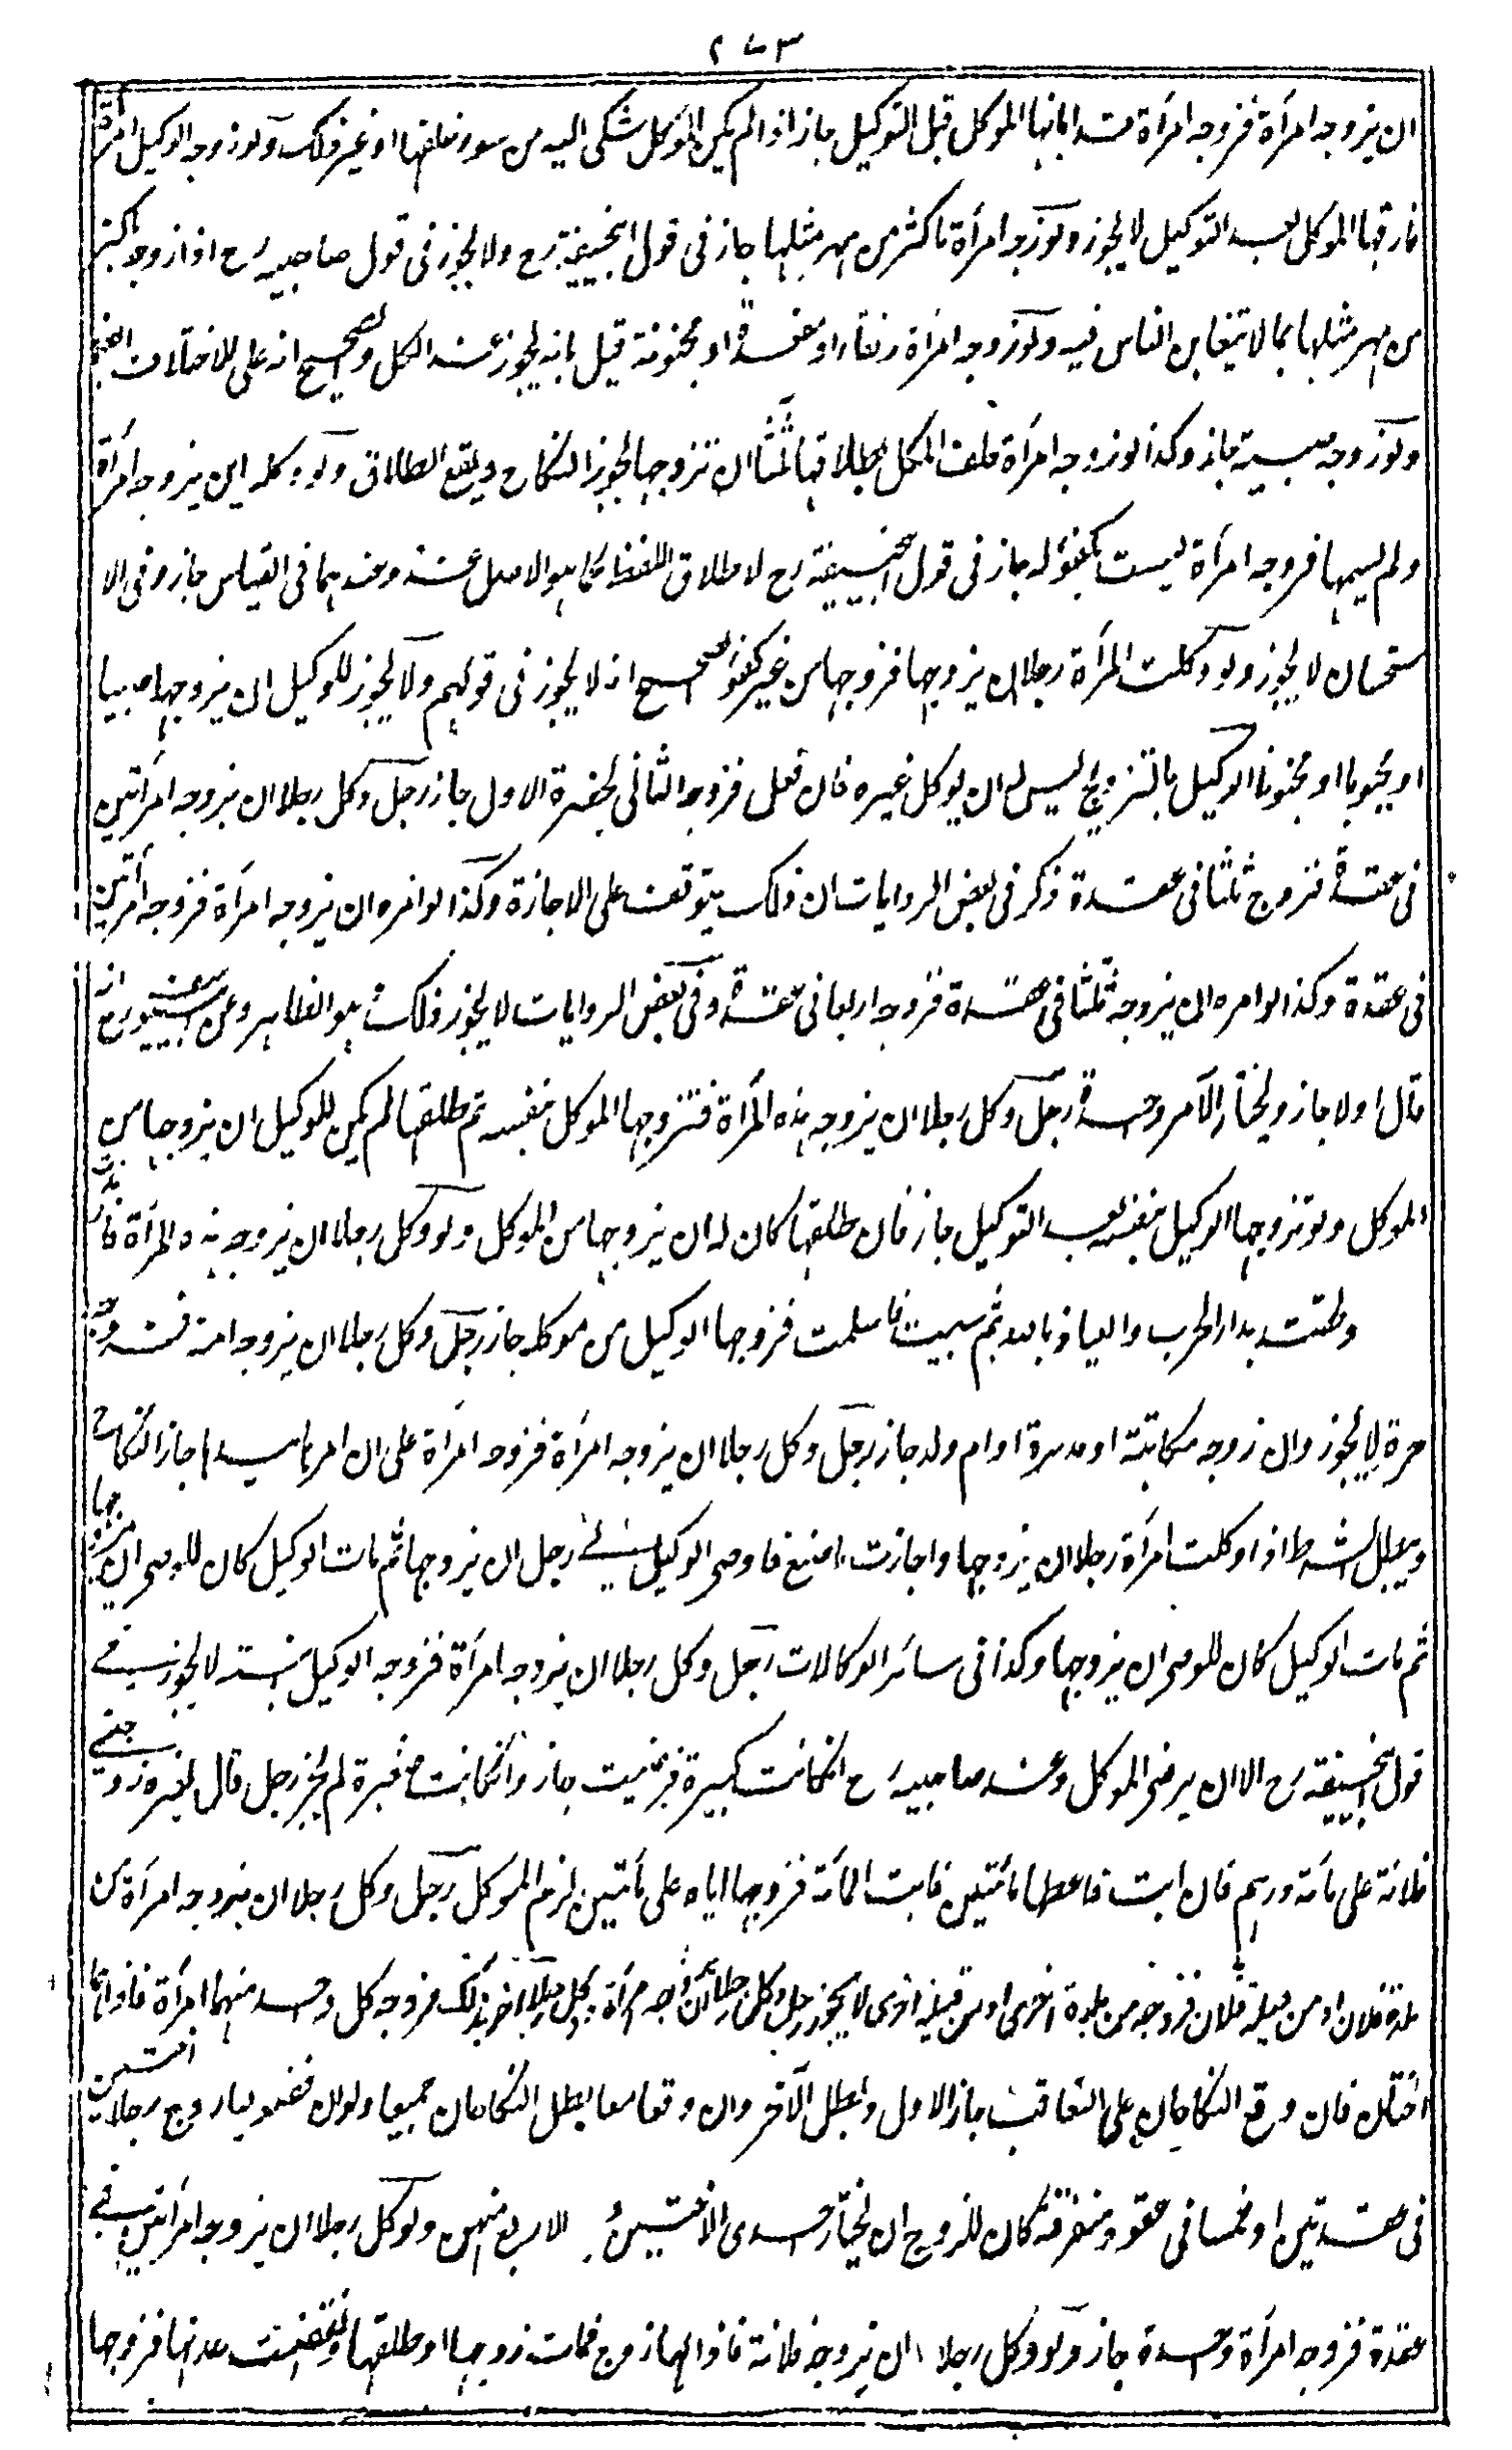 ٢٧٣
ان يزوجه امرأة فزوجه امرأة قد ابانها الموكل قبل التوكيل جاز اذا لم يكن الموكل شكى اليه من سوء خلقها او غير ذلك ولو زوجه الوكيل امرأة
فارقها الموكل بعد التوكيل لا يجوز ولو زوجه امرأة باكثر من مهر مثلها جاز فى قول ابيحنيفة رح ولا يجوز فى قول صاحبيه رح اذا زوجه باكثر
من مهر مثلها بما لا يتغابن الناس فيه ولو زوجه امرأة رتقاء او مقعدة او مجنونة قيل بانه يجوز عند الكل والصحيح انه على الاختلاف ايضا
ولو زوجه صبية جاز وكذا لو زوجه امرأة حلف الموكل بطلاقها ثلثا ان تزوجها يجوز النكاح ويقع الطلاق ولو وكله ان يزوجه امرأة
ولم يسمها فزوجه امرأة ليست بكفؤ له جاز فى قول ابيحنيفة رح لاطلاق اللفظ كما هو الاصل عنده وعندهما فى القياس جاز وفى الا
ستحسان لا يجوز ولو وكلت المرأة رجلا ان يزوجها فزوجها من غير كفؤ الصحيح انه لا يجوز فى قولهم ولا يجوز للوكيل ان يزوجها صبيا
او مجبوبا او مجنونا الوكيل بالتزويج ليس له ان يوكل غيره فان فعل فزوجه الثانى بحضرة الاول جاز رجل وكل رجلا ان يزوجه امرأتين
فى عقدة فتزوج ثلثا فى عقدة ذكر فى بعض الروايات ان ذلك يتوقف على الاجازة وكذا لو امره ان يزوجه امرأة فزوجه امرأتين
فى عقدة وكذا لو امره ان يزوجه ثلثا فى عقدة فزوجه اربعا فى عقدة وفى بعض الروايات لا يجوز ذلك هو الظاهر وعن ابي يوسف رح انه
قال اولا جاز ويختار الآمر واحدة رجل وكل رجلا ان يزوجه هذه المرأة فتزوجها الموكل بنفسه ثم طلقها لم يكن للوكيل ان يزوجها من
الموكل ولو تزوجها الوكيل بنفسه بعد التوكيل جاز فان طلقها كان له ان يزوجها من الموكل ولو وكل رجلا ان يزوجه هذه المرأة فارتدت
ولحقت بدار الحرب والعياذ بالله ثم سبيت فاسلمت فزوجها الوكيل من موكله جاز رجل وكل رجلا ان يزوجه امة فزوجه
حرة لا يجوز وان زوجه مكاتبة او مدبرة او ام ولد جاز رجل وكل رجلا ان يزوجه امرأة فزوجه امرأة على ان امرها بيدها جاز النكاح
ويبطل الشرط اذا وكلت امرأة رجلا ان يزوجها واجازت ما صنع فاوصى الوكيل الى رجل ان يزوجها ثم مات الوكيل كان للوصى ان يزوجها
ثم مات الوكيل كان للوصى ان يزوجها وكذا فى سائر الوكالات رجل وكل رجلا ان يزوجه امرأة فزوجه الوكيل بنته لا يجوز فى
قول ابيحنيفة رح الا ان يرضى الموكل وعند صاحبيه رح ان كانت كبيرة فرضيت جاز وان كانت صغيرة لم يجز رجل قال لغيره زوجنى
فلانة على مائة درهم فان ابت فاعطها مائتين فابت المائة فزوجها اياه على مائتين لزم الموكل رجل وكل رجلا ان يزوجه امرأة من
بلدة فلان او من قبيلة فلان فزوجه من بلدة اخرى او من قبيلة اخرى لا يجوز رجل وكل رجلا ان يزوجه امرأة وكل رجلا آخر بذلك فزوجه كل واحد منهما امرأة فاذا هما
اختان فان وقع النكاحان على التعاقب جاز الاول وبطل الآخر وان وقعا معا بطل النكاحان جميعا ولو ان فضوليا زوج رجلا اختين
فى عقدتين او خمسا فى عقود متفرقة كان للزوج ان يختار احدى الاختين الاربع منهن ولو وكل رجلا ان يزوجه امرأتين فى
عقدة فزوجه امرأة واحدة جاز ولو وكل رجلا ان يزوجه فلانة فاذا لها زوج فمات زوجها او طلقها وانقضت عدتها فزوجها